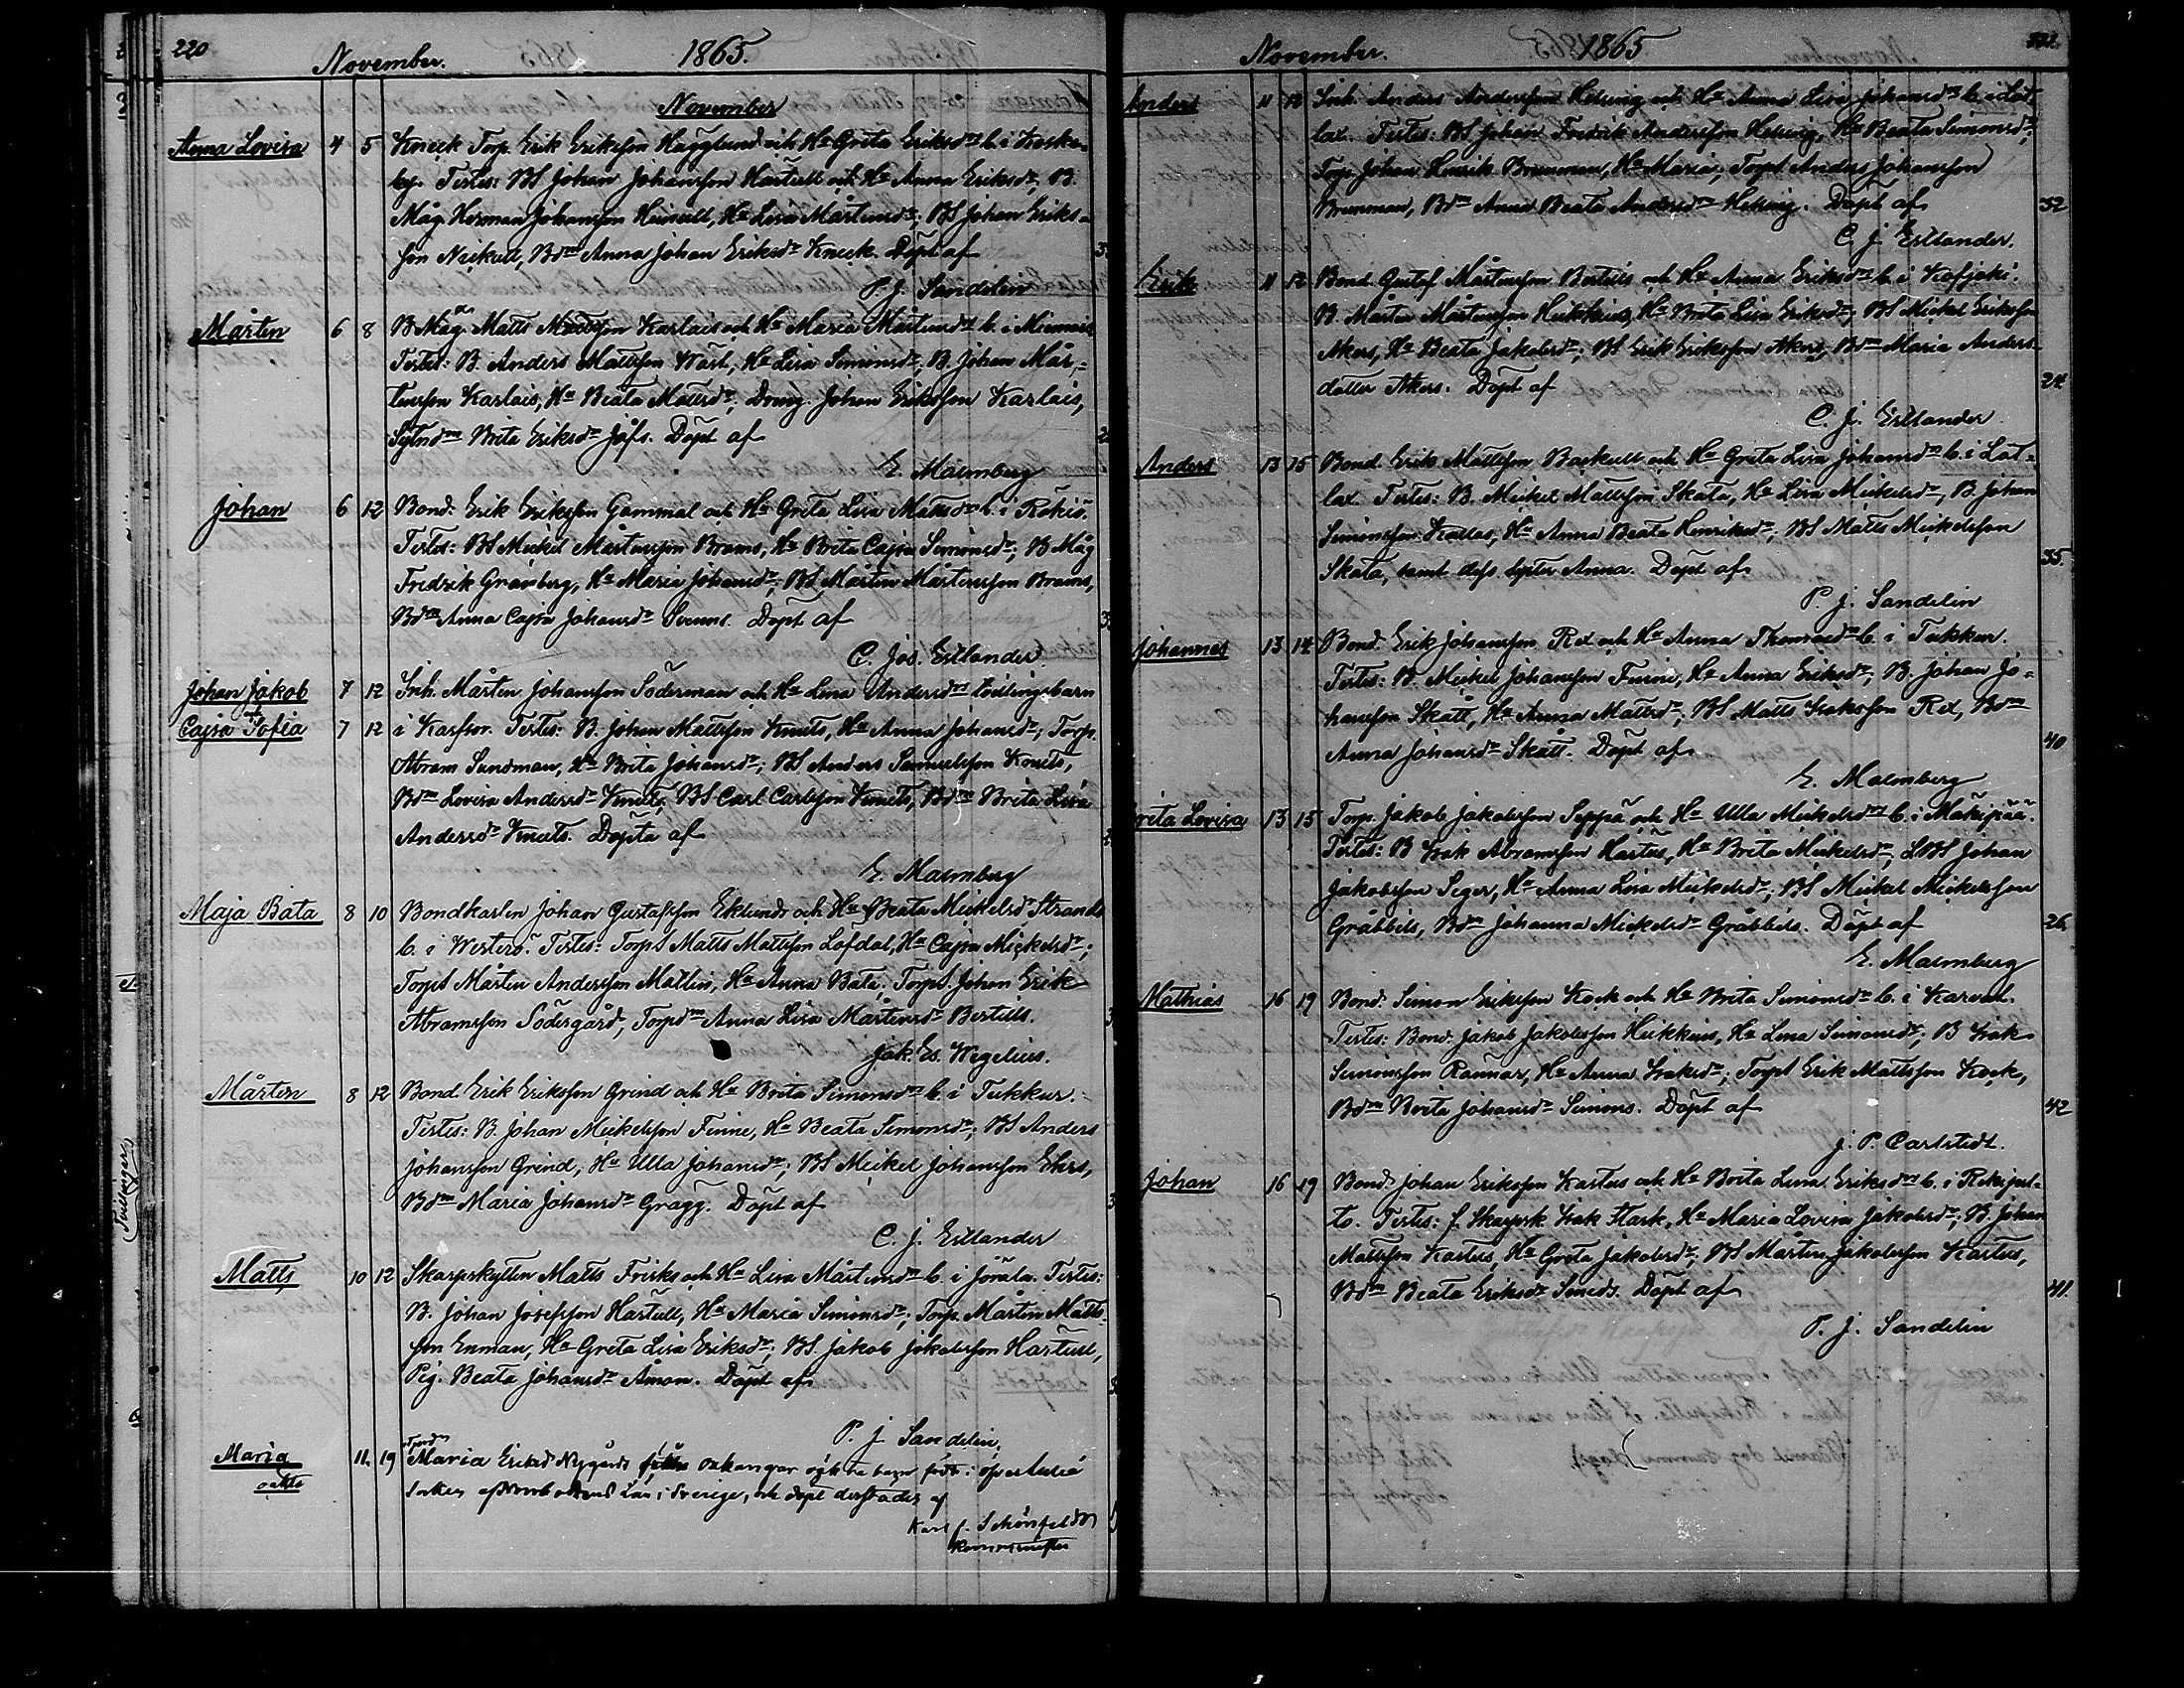 220 November. 1865.
November
Anna Lovisa 4 5 Kneck Torp. Erik Eriksson Hägglund och Hu Greta Eriksdr b. i Koske-
by. Testes: BS Johan Johansson Hartull och Hu Anna Eriksdr, B.
Måg Herman Johansson Heinull, Hu Lisa Mårtensdr; BS Johan Eriks-
son Neckull, Bdm Anna Johan Eriksdr Kneck. Döpt af
P. J. Sandelin
Mårten 6 8 BMåg Matts Mattsson Karlais och Hu Maria Mårtensdr b. i Miemois
Testes: B. Anders Mattsson Wäst, Hu Lisa Simonsdr, B. Johan Mår-
tensson Karlais, Hu Beata Mattsdr; Dräng. Johan Eriksson Karlais,
Sytndm Brita Eriksdr Jåfs. Döpt af
E. Malmberg
Johan 6 12 Bond. Erik Eriksson Gammal och Hu Greta Lisa Mattsdr b. i Rökiö.
Testes: BS Mickel Mårtensson Brams, Hu Brita Cajsa Simonsdr; B Måg
Fredrik Granberg, Hu Maria Johansdr; BS Mårten Mårtensson Brams,
Bdm Anna Cajsa Johansdr Svenns. Döpt af
C. Jos. Estlander.
Johan Jakob 7 12 Inh. Mårten Johansson Söderman och Hu Lena Andersdr tvillingebarn
och
Cajsa Sofia 7 12 i Karflor. Testes: B. Johan Mattsson Knuts, Hu Anna Johansdr; Torp.
Abram Sundman, Hu Brita Johansdr; BS Anders Samuelsson Knuts,
Bdm Lovisa Andersdr Knuts, BS Carl Carlsson Knuts, Bdm Brita Lisa
Andersdr Knuts. Döpta af
E. Malmberg
Maja Bata 8 10 Bondkarlen Johan Gustafsson Eklund och Hu Beata Mickelsdr Strands
b. i Westerö. Testes: Torpt Matts Mattsson Löfdal, Hu Cajsa Mickelsdr;
Torpt Mårten Andersson Mattlin, Hu Anna Bata; Torpt. Johan Erik
Abramsson Södergård, Torpdm Anna Lisa Mårtensdr Bertills.
Jak. Es. Wegelius.
Mårten 8 12 Bond. Erik Eriksson Grind och Hu Brita Simonsdr b. i Tukkur.
Testes: B. Johan Mickelsson Finne, Hu Beata Simonsdr; BS Anders
Johansson Grind, Hu Ulla Johansdr; BS Mickel Johansson Ehrs,
Bdm Maria Johansdr Grägg. Döpt af
C. J. Estlander
Matts 10 12 Skarpskytten Matts Frisk och Hu Lisa Mårtensdr b. i Jörala. Testes:
B. Johan Josefsson Hartull, Hu Maria Simonsdr; Torp. Mårten Matts-
son Enman, Hu Greta Lisa Eriksdr; BS. Jakob Jakobsson Hartull,
Pig. Beata Johansdr Åman. Döpt af
P. J. Sandelin.
Maria 11. 19 Maria Eriksd Nygårds oäkta barn född i
oäkta socken af Norrbottens Län i Sverige, och döpt derstädes af
Karl J. Schönfeldt
Komminister
November. 1865 221.
Anders 11 12 Inh. Anders Andersson Helsing och Hu Anna Lisa Johansdr b. i Lot-
lax. Testes: BS Johan Fredrik Andersson Helsing, Hu Beata Simonsdr;
Torp. Johan Henrik Brunnman, Hu Maria; Torpt Anders Johansson
Brunnman, Bdm Anna Beata Andersdr Helsing. Döpt af 32
C. J. Estlander.
Erik 11 12 Bond Gustaf Mårtensson Bertills och Hu Anna Eriksdr b. i Kofjoki.
B. Mårten Mårtensson Heikkius, Hu Brita Lisa Eriksdr; BS Mickel Eriksson
Akers, Hu Beata Jakobsdr; BS Erik Eriksson Akers, Bdm Maria Anders-
dotter Akers. Döpt af 24
C. J. Estlander
Anders 13 15 Bond. Erik Mattsson Backull och Hu Greta Lisa Johansdr b. i Lot-
lax. Testes: B. Mickel Mattsson Skata, Hu Lisa Mickelsdr, B. Johan
Simonsson Kallas, Hu Anna Beata Henriksdr; BS Matts Mickelsson
Skata, samt dess syster Anna. Döpt af 35.
P. J. Sandelin
Johannes 13 14 Bond. Erik Johansson Rex och Hu Anna Thomasdr b. i Tukkur.
Testes: B. Mickel Johansson Finne, Hu Anna Eriksdr; B. Johan Jo-
hansson Skatt, Hu Anna Mattsdr; BS Matts Isaksson Rex, Bdm
Anna Johansdr Skatt. Döpt af 40
E. Malmberg
rita Lovisa 13 15 Torp. Jakob Jakobsson Seppä och Hu Ulla Mickelsdr b. i Mäkipää.
Testes: B Isak Abramsson Hartus, Hu Brita Mickelsdr; LBS Johan
Jakobsson Seger, Hu Anna Lisa Mickelsdr; BS Mickel Mickelsson
Gråbbils, Bdm Johanna Mickelsdr Gråbbils. Döpt af 26
E. Malmberg
Mathias 16 19 Bond. Simon Eriksson Kock och Hu Brita Simonsdr b. i Karvat.
Testes: Bond. Jakob Jakobsson Heikkius, Hu Lena Simonsdr; B Isak
Simonsson Rannar, Hu Anna Isaksdr; Torpt Erik Mattsson Kock,
Bdm Brita Johansdr Simons. Döpt af 42
J. P. Carlstedt.
Johan 16 19 Bond. Johan Eriksson Kartus och Hu Brita Lena Eriksdr b. i Rekipel-
to. Testes: f. Skarpsk Isak Stark, Hu Maria Lovisa Jakobsdr; B. Johan
Mattsson Kartus, Hu Greta Jakobsdr; BS Mårten Jakobsson Kartus,
Bdm Beata Eriksdr Smeds. Döpt af 41.
P. J. Sandelin